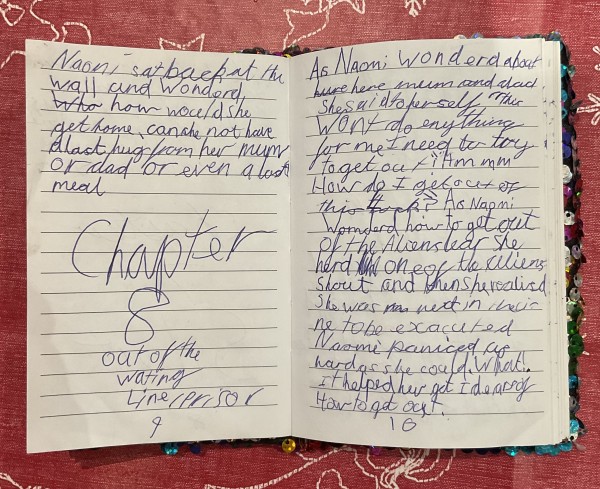 Naomi sat back at the
wall and wonderd
how would she
get home, can she not have
a last hug from her mum
or dad or even a last
meal
Chapter
8
out of the
wating
Line/prison
9
As Naomi wonderd about
here mum and dad.
She said to perself, This
WONT do enything
for me I need to try
to get out! Hmmmm
How do I get out of
this ? As Naomi
wonderd how to get out
of the Aliens lear she
herd one of the Aliens
shout and then she realised
She was next in
ne to be exacuted
Naomi paniced as
hard as she could. What!
it helped her get I dea of
How to get out.
10